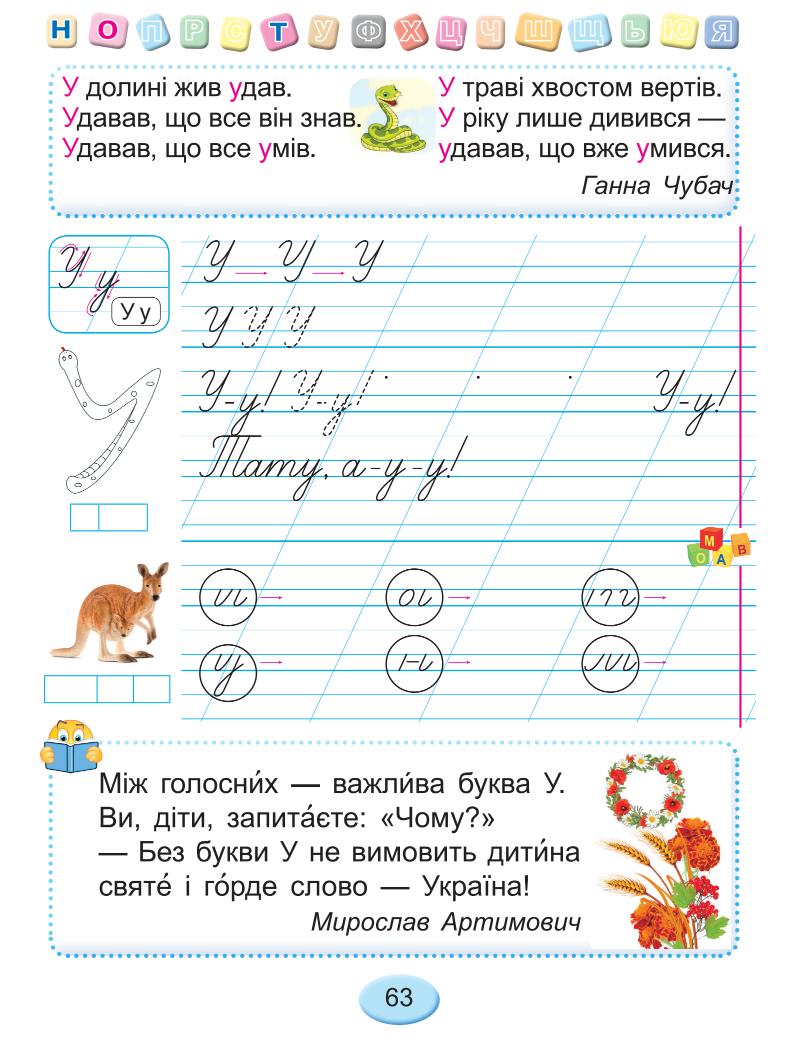 Н О П Р С Т У Ф Х Ц Ч Ш Щ Ь Ю Я
У долині жив удав.
Удавав, що все він знав.
Удавав, що все умів.
У траві хвостом вертів.
У ріку лише дивився —
удавав, що вже умився.
Ганна Чубач
У у
У у
У У У
У У У
У-у! У-у! У-у!
Тату, а-у-у!
М
О А В
и о п
у н ш
Між голосни́х — важли́ва буква У.
Ви, діти, запита́єте: «Чому?»
— Без букви У не вимовить дити́на
святе́ і го́рде слово — Україна!
Мирослав Артимович
63